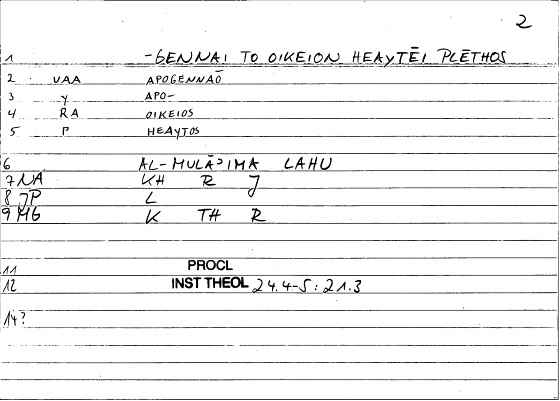 2
1 -GENNAI TO OIKEION HEAYTĒI PLĒTHOS
2 VAA APOGENNAŌ
3 Y APO-
4 RA OIKEIOS
5 P HEAYTOS
6 AL-MULĀʾIMA LAHU
7 NA KH R J
8 JP L
9 MG K TH R
11 PROCL
12 INST THEOL 24.4-5 : 21.3
14?